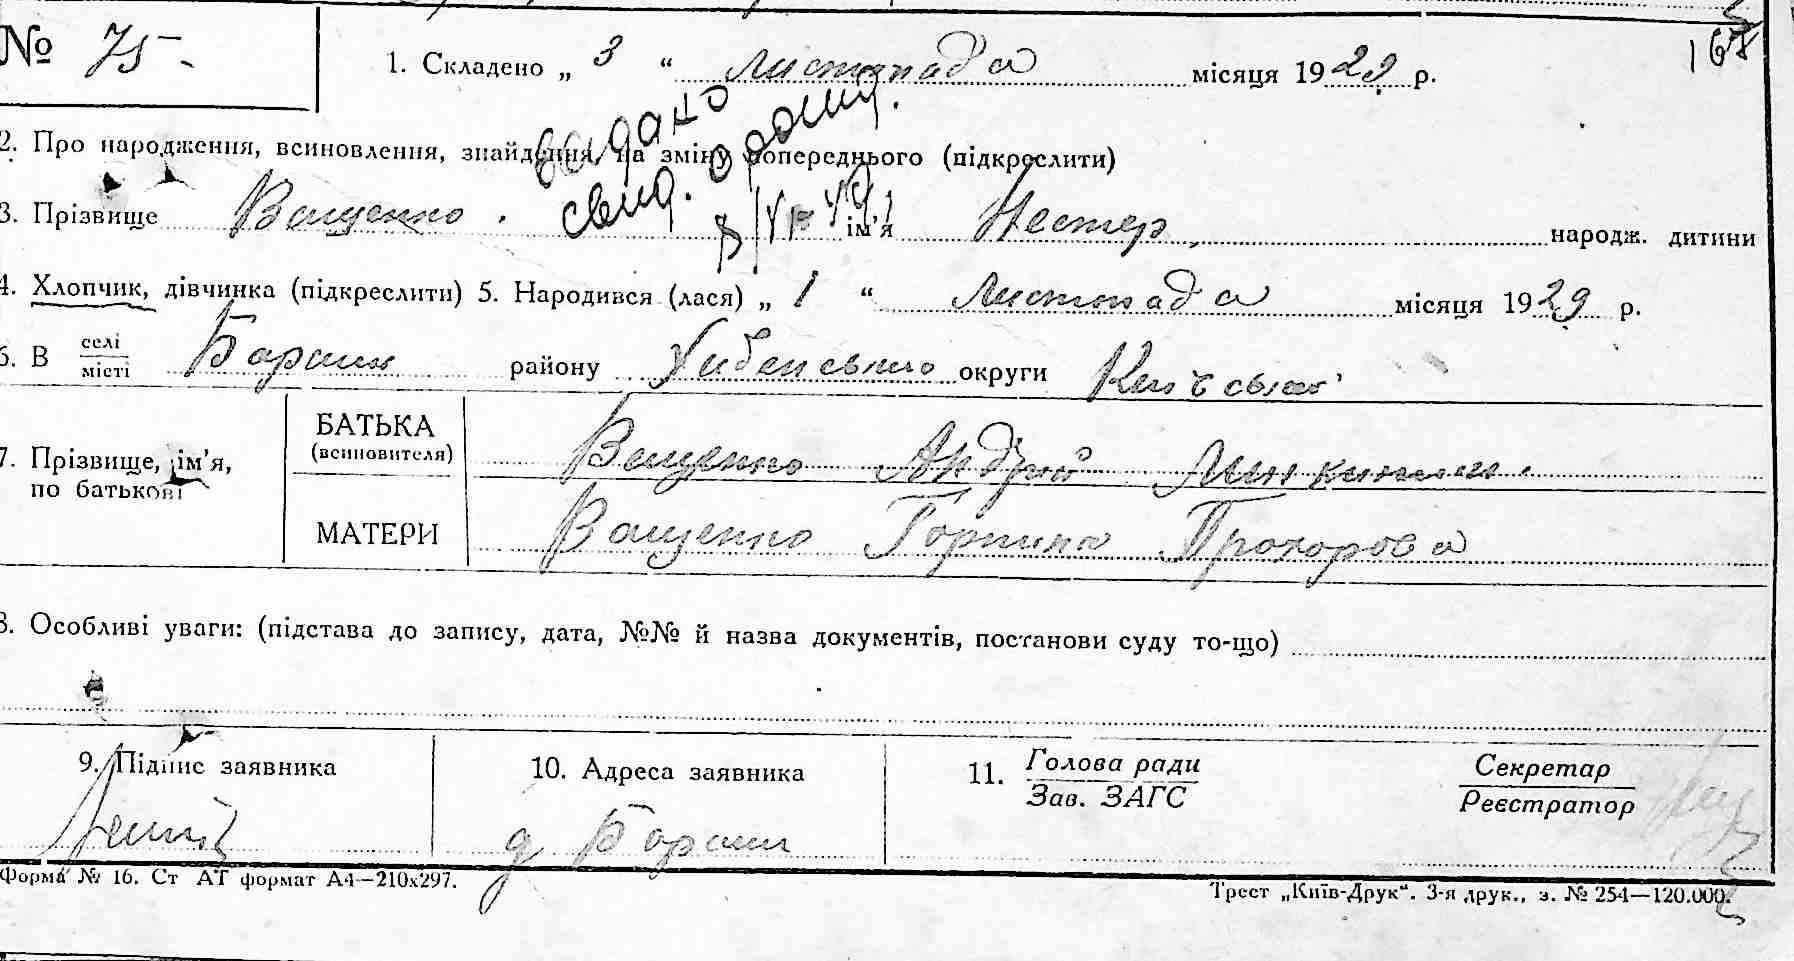 № 75
168
1. Складено „ 3 “ листопада місяця 1929 р.
видано
свид. о рожд.
2. Про народження, всиновлення, знайдення, на зміну попереднього (підкреслити)
3. Прізвище Ващенко. ім’я Нестер, народж. дитини
4. Хлопчик, дівчинка (підкреслити) 5. Народився (лася) „ 1 “ листопада місяця 1929 р.
6. В селі місті району округи
7. Прізвище, ім’я, по батькові
БАТЬКА (всиновителя) Ващенко Андрій
МАТЕРИ Ващенко Горпина Прохорова
8. Особливі уваги: (підстава до запису, дата, №№ й назва документів, постанови суду то-що)
9. Підпис заявника 10. Адреса заявника 11. Голова ради Секретар
Зав. ЗАГС Реєстратор
Форма № 16. Ст АТ формат А4—210х297. Трест „Київ-Друк“. 3-я друк., з. № 254—120.000.